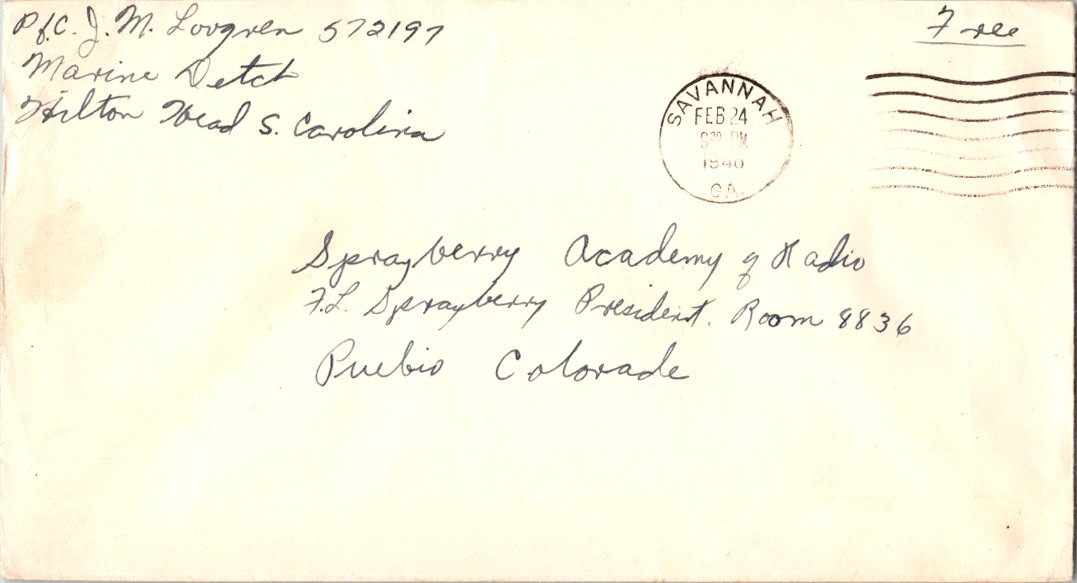 Pfc. J. M. Lovgren 572197
Marine Detch
Hilton Head S. Carolina
Free
SAVANNAH
FEB 24
9 30 PM
1946
GA.
Sprayberry Academy of Radio
F.L. Sprayberry President. Room 8836
Pueblo Colorade